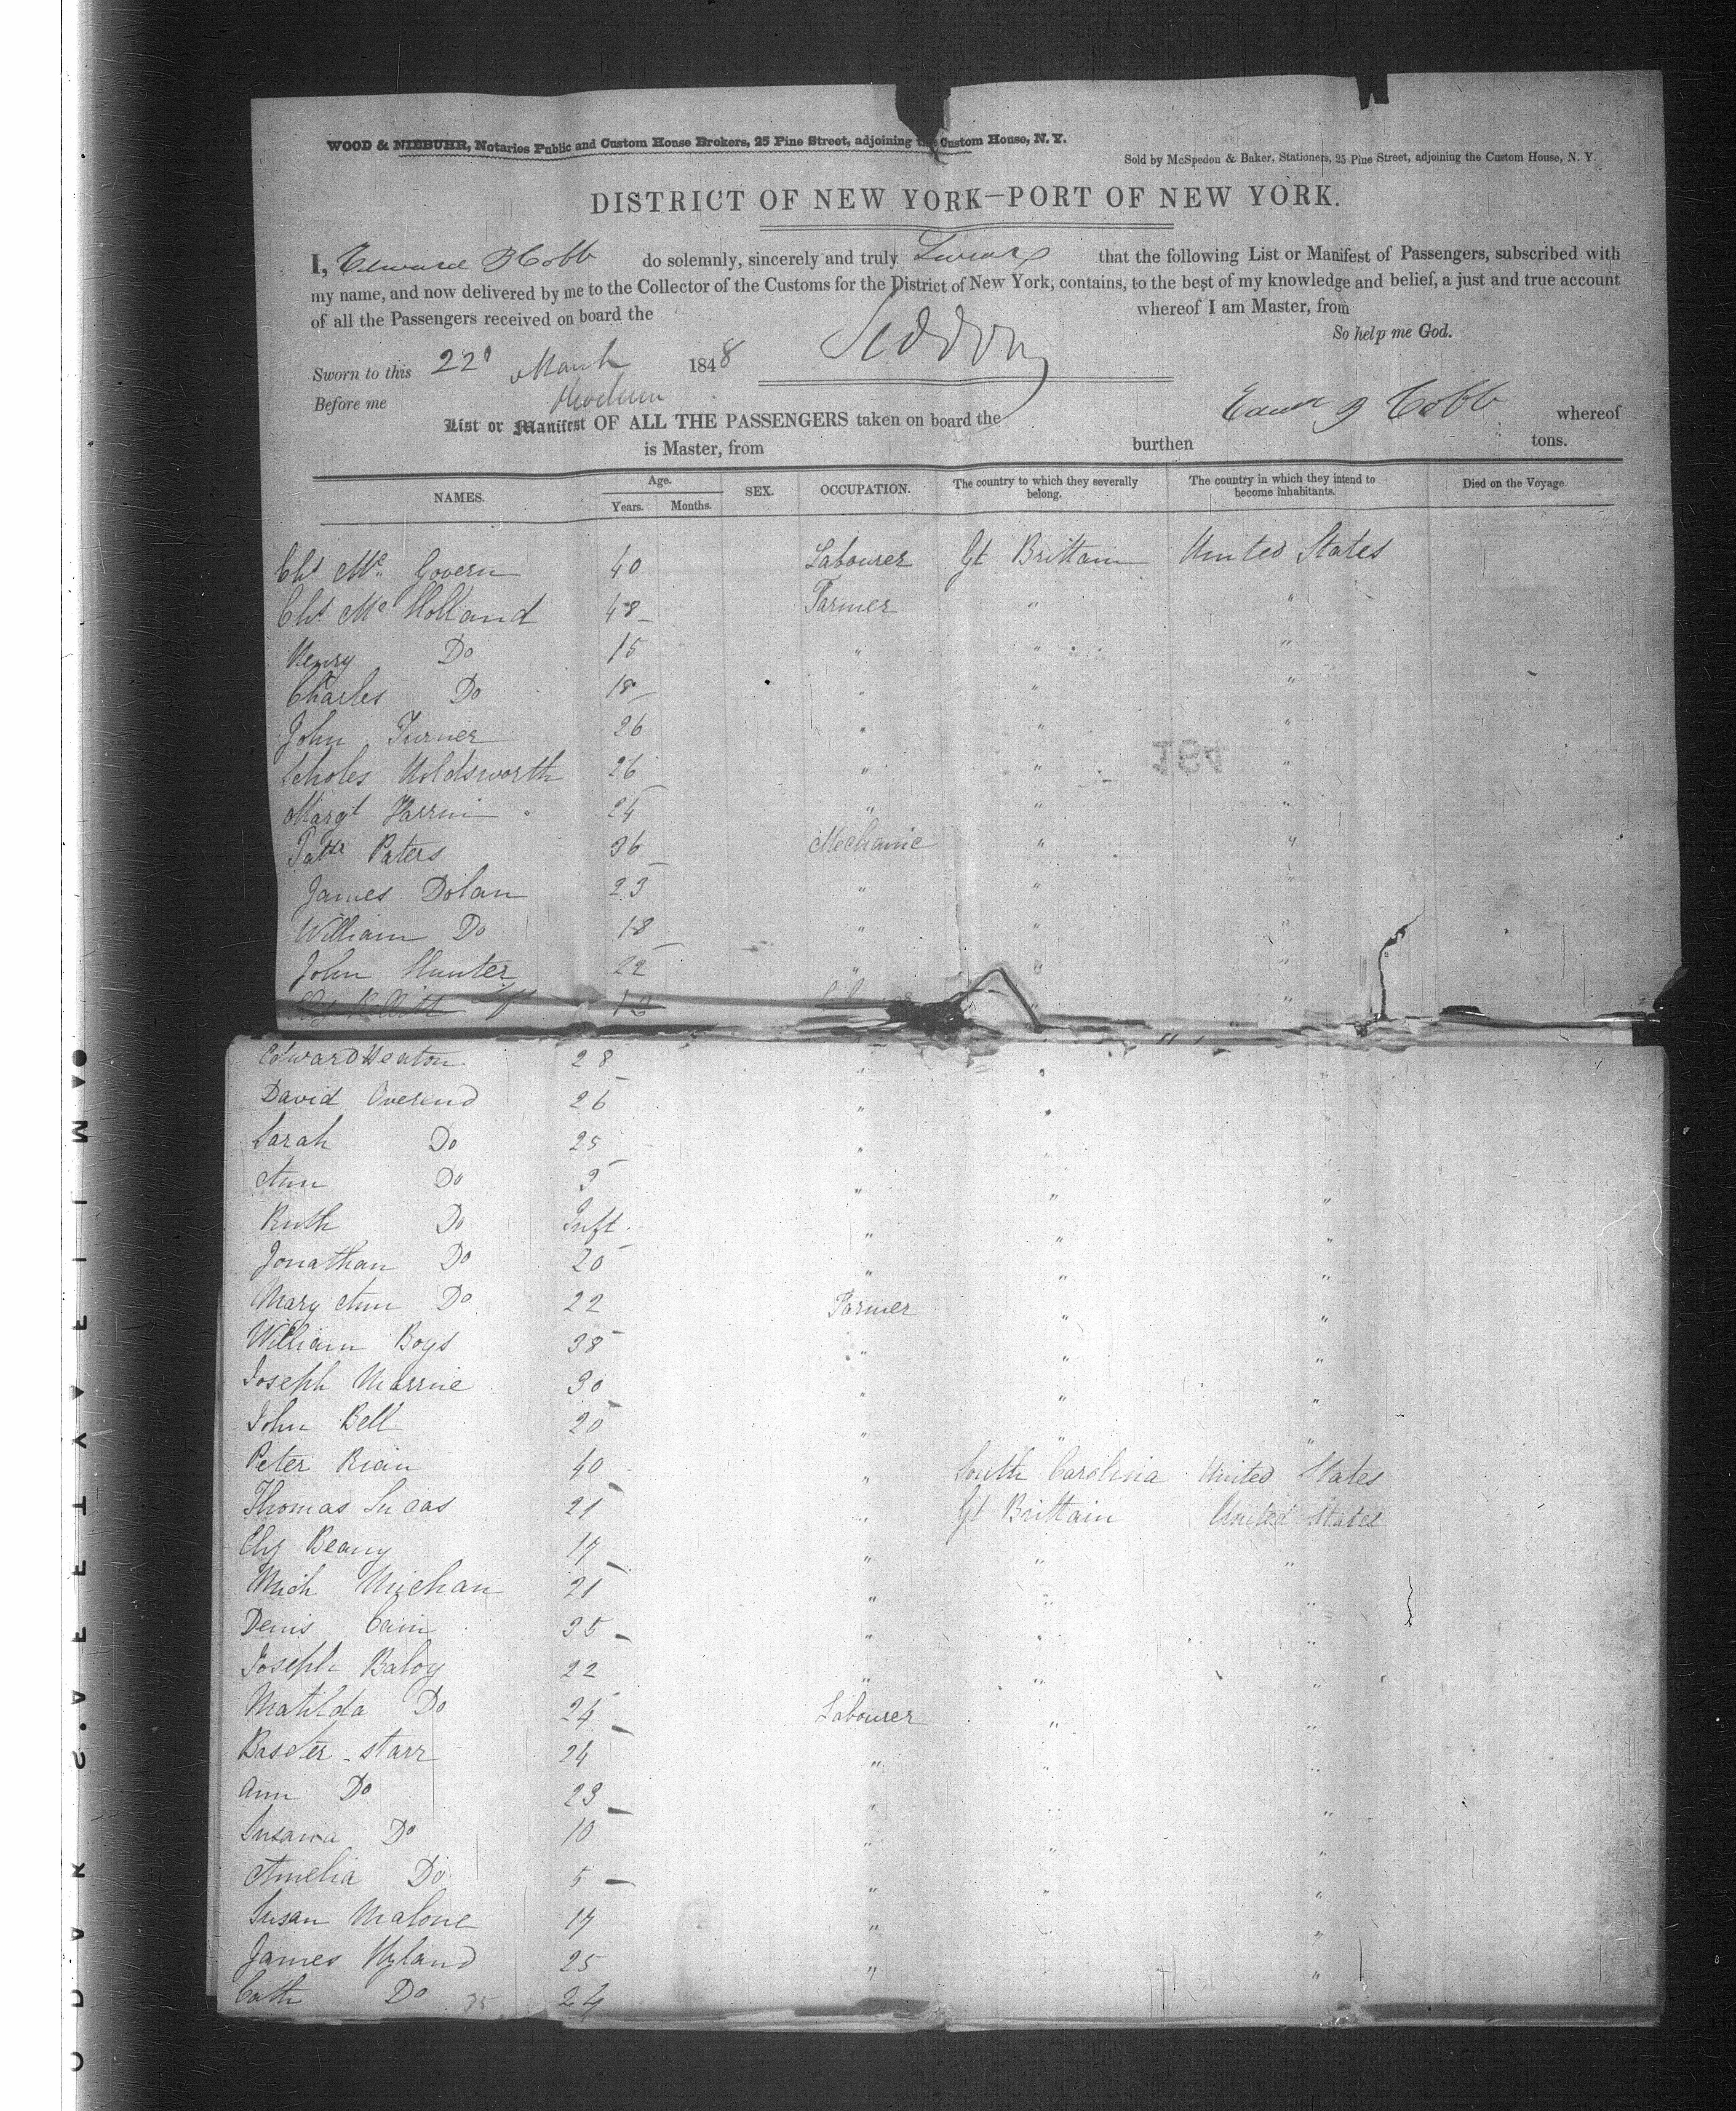 WOOD & NIEBUHR, Notaries Public and Custom House Brokers, 25 Pine Street, adjoining the Custom House, N. Y.
Sold by McSpedon & Baker, Stationers, 25 Pine Street, adjoining the Custom House, N. Y.
DISTRICT OF NEW YORK—PORT OF NEW YORK.
I, Edward Cobb do solemnly, sincerely and truly Swear that the following List or Manifest of Passengers, subscribed with
my name, and now delivered by me to the Collector of the Customs for the District of New York, contains, to the best of my knowledge and belief, a just and true account
of all the Passengers received on board the whereof I am Master, from
So help me God.
Sworn to this 22d March 1848
Before me
Seddon
List or Manifest OF ALL THE PASSENGERS taken on board the Cobb whereof
is Master, from burthen tons.
NAMES. Age. Years. Months. SEX. OCCUPATION. The country to which they severally belong. The country in which they intend to become inhabitants. Died on the Voyage.
Chs Mc Govern 40 Labourer Gt Brittain United States
Chs Mc Holland 48 Farmer " "
Henry Do 15 " " "
Charles Do 18 " " "
John Turner 26 " " "
Scholes Holdsworth 26 " " "
Margt 24 " " "
Peters 36 Mechanic " "
James Dolan 23 " " "
William Do 18 " " "
John Hunter 22 " " "
12 " "
Edward Heaton 28 " " "
David Overend 26 " "
Sarah Do 25 " " "
Ann Do 3 " " "
Ruth Do Inft. " " "
Jonathan Do 20 " " "
Mary Ann Do 22 Farmer " "
William Boys 38 " " "
Joseph 30 " " "
John Bell 20 " " "
Peter Rian 40 " South Carolina United States
Thomas Lucas 21 " Gt Brittain United States
Beany 17 " " "
Mich 21 " " "
Denis Cain 35 " " "
Joseph Baloy 22 " " "
Matilda Do 24 Labourer " "
Starr 24 " " "
Ann Do 23 " " "
Susanna Do 10 " " "
Amelia Do 5 " " "
Susan Malone 17 " " "
James Hyland 25 " "
Cath Do 35 24